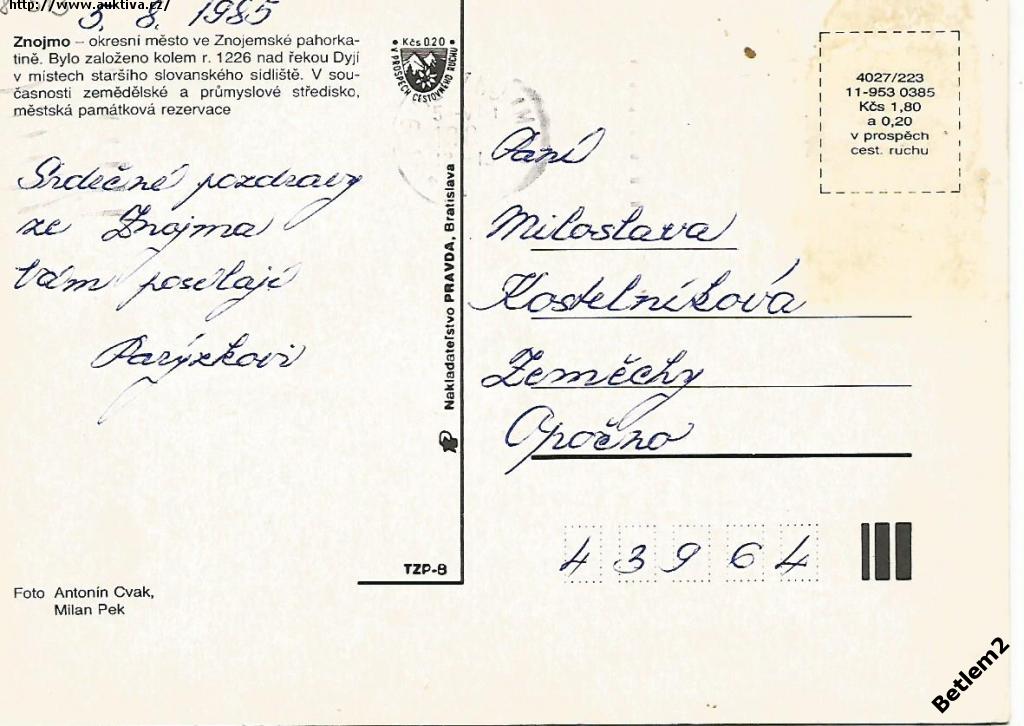 http://www.auktiva.cz/
3. 8. 1985
Znojmo – okresní město ve Znojemské pahorka-
tině. Bylo založeno kolem r. 1226 nad řekou Dyjí
v místech staršího slovanského sídliště. V sou-
časnosti zemědělské a průmyslové středisko,
městská památková rezervace
Srdečné pozdravy
ze Znojma
Vám posílají
Parýzkovi
Foto Antonín Cvak,
Milan Pek
Kčs 0.20
V PROSPĚCH CESTOVNÉHO RUCHU
Nakladateľstvo PRAVDA, Bratislava
TZP-8
4027/223
11-953 0385
Kčs 1,80
a 0,20
v prospěch
cest. ruchu
Paní
Miloslava
Kostelníková
Zeměchy
Opočno
43964
Betlem2